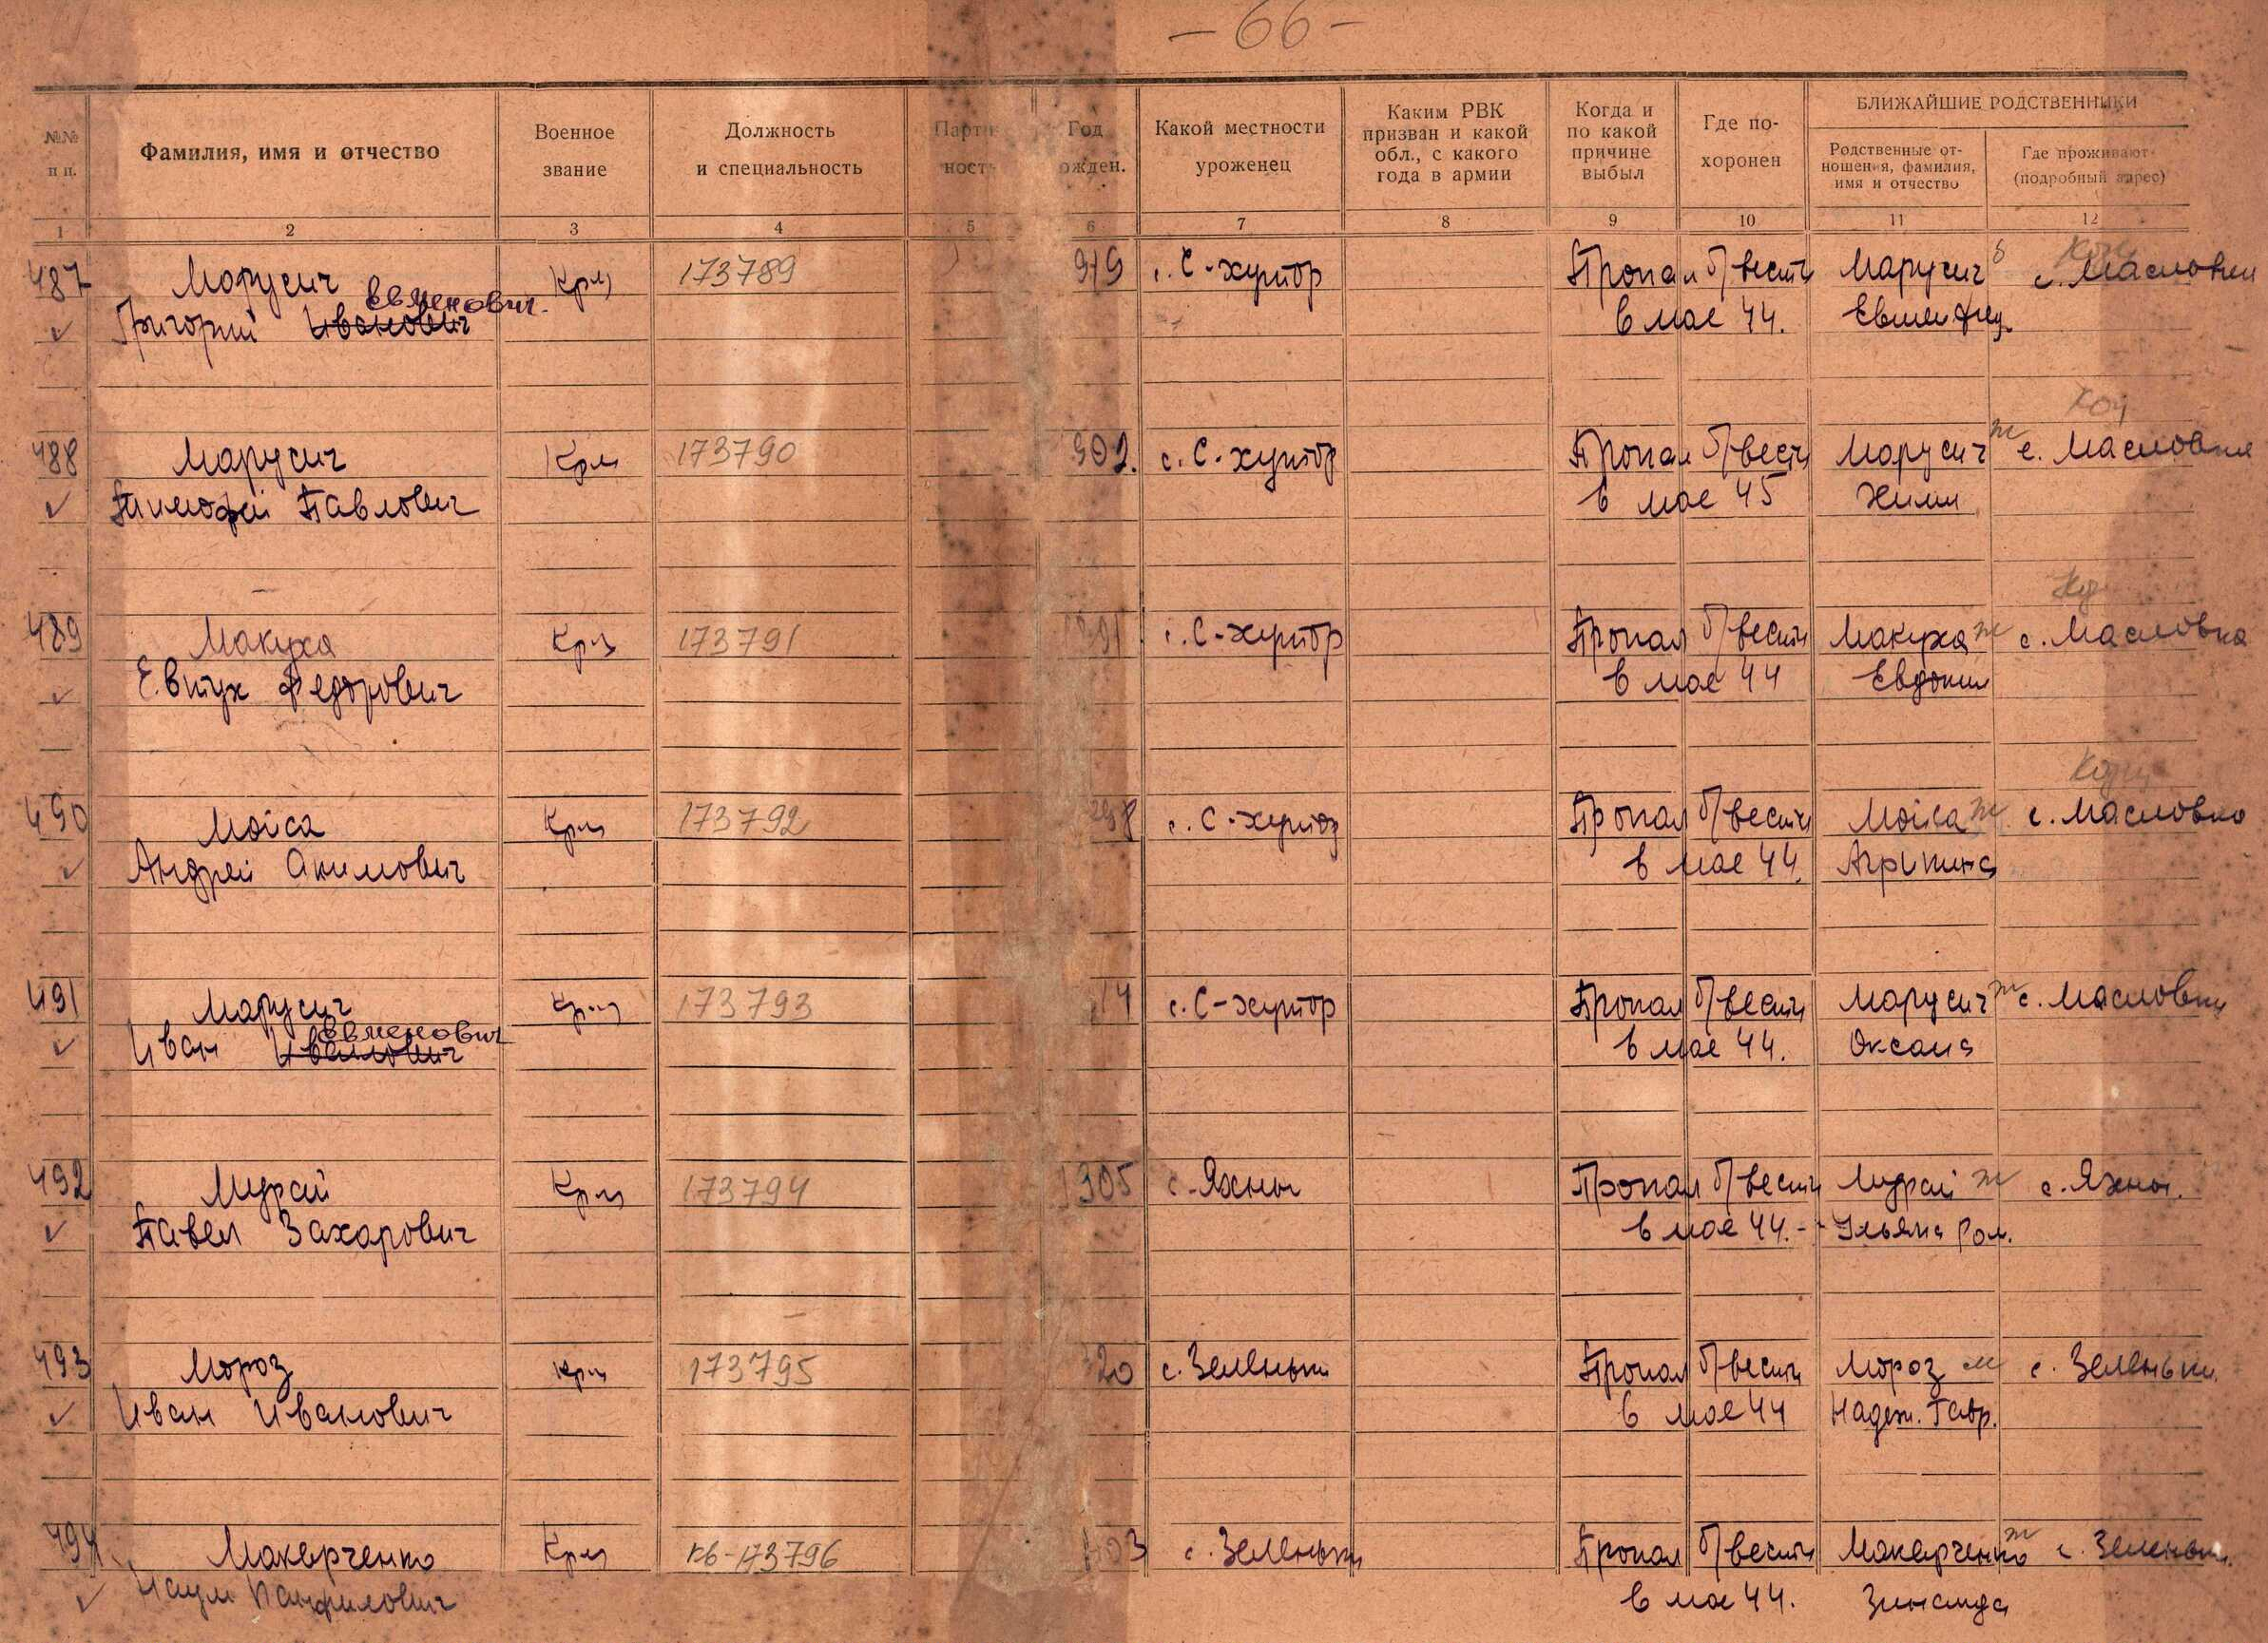 - 66 -
№№ п п.
Фамилия, имя и отчество
Военное звание
Должность и специальность
Парти ност
Год ожден.
Какой местности уроженец
Каким РВК призван и какой обл., с какого года в армии
Когда и по какой причине выбыл
Где по-хоронен
БЛИЖАЙШИЕ РОДСТВЕННИКИ
Родственные от-ношения, фамилия, имя и отчество
Где проживают (подробный адрес)
1 2 3 4 5 6 7 8 9 10 11 12
487 Марусич Крц 173789 919 с. С-хутор Пропал б/вести Марусич с. Масловки
Евменович
Григорий Иванович в мае 44. Евмен Фед.
488 Марусич Крц 173790 902. с. С-хутор Пропал б/вести Марусич ж с. Масловка
Тимофей Павлович в мае 45 Химы
489 Макуха Крц 173791 с. С-хутор Пропал б/вести Макуха ж с. Масловка
Евтух Федорович в мае 44 Евдоким
490 Мойса Крц 173792 с. С-хутор Пропал б/вести Мойса ж с. Масловка
Андрей Акимович в мае 44. Агрипина
491 Марусич Крц 173793 14 с. С-хутор Пропал б/вести Марусич ж с. Масловки
Евменович
Иван Иванович в мае 44. Оксана
492 Мурай Крц 173794 905 с. Яхны Пропал б/вести Мурай ж с. Яхны.
Павел Захарович в мае 44. - Ульяна Ром.
493 Мороз Крц 173795 20 с. Зеленьки Пропал б/вести Мороз м с. Зеленьки.
Иван Иванович в мае 44 Надеж. Гавр.
494 Макарченко Крц кв-173796 03 с. Зеленьки Пропал б/вести Макарченко ж с. Зеленьки.
Наум Панфилович в мае 44. Зинаида